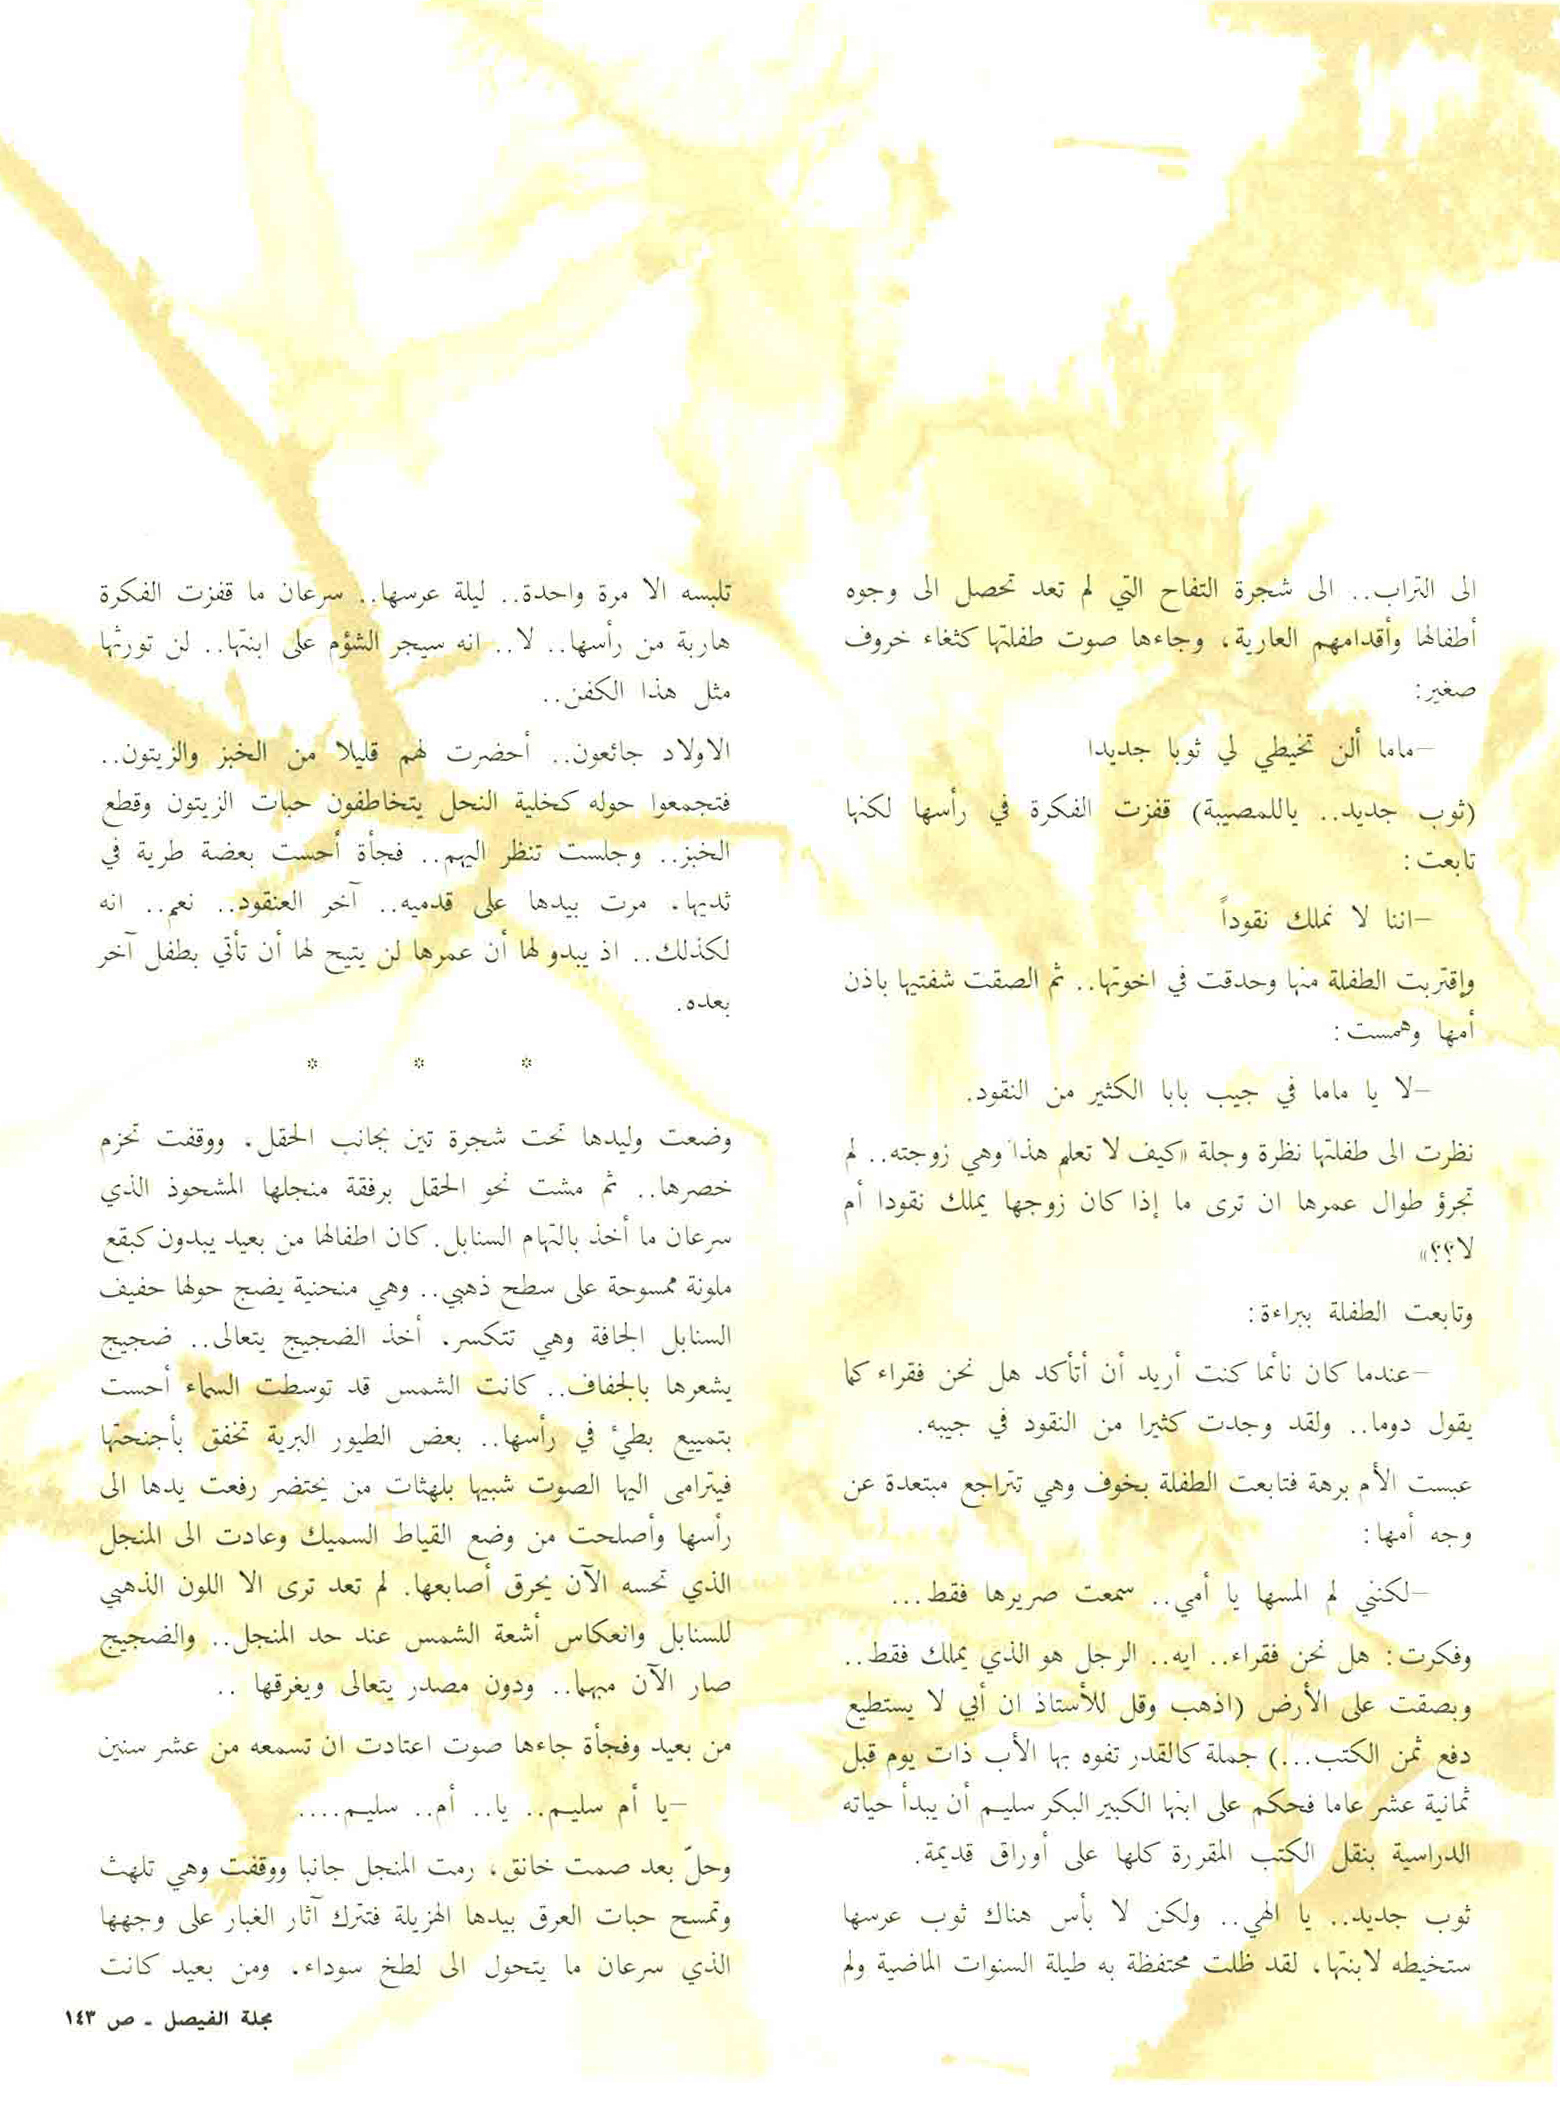 الى التراب.. الى شجرة التفاح التي لم تعد تحصل الى وجوه
أطفالها وأقدامهم العارية، وجاءها صوت طفلتها كثغاء خروف
صغير:
—ماما ألن تخيطي لي ثوبا جديدا
(ثوب جديد.. ياللمصيبة) قفزت الفكرة في رأسها لكنها
تابعت:
—اننا لا نملك نقوداً
وإقتربت الطفلة منها وحدقت في اخوتها.. ثم الصقت شفتيها باذن
أمها وهمست:
—لا يا ماما في جيب بابا الكثير من النقود.
نظرت الى طفلتها نظرة وجلة «كيف لا تعلم هذا وهي زوجته.. لم
تجرؤ طوال عمرها ان ترى ما إذا كان زوجها يملك نقودا أم
لا؟؟»
وتابعت الطفلة ببراءة:
—عندما كان نائما كنت أريد أن أتأكد هل نحن فقراء كما
يقول دوما.. ولقد وجدت كثيرا من النقود في جيبه.
عبست الأم برهة فتابعت الطفلة بخوف وهي تتراجع مبتعدة عن
وجه أمها:
—لكنني لم المسها يا أمي.. سمعت صريرها فقط...
وفكرت: هل نحن فقراء.. ايه.. الرجل هو الذي يملك فقط..
وبصقت على الأرض (اذهب وقل للأستاذ ان أبي لا يستطيع
دفع ثمن الكتب...) جملة كالقدر تفوه بها الأب ذات يوم قبل
ثمانية عشر عاما فحكم على ابنها الكبير البكر سليم أن يبدأ حياته
الدراسية بنقل الكتب المقررة كلها على أوراق قديمة.
ثوب جديد.. يا الهي.. ولكن لا بأس هناك ثوب عرسها
ستخيطه لابنتها، لقد ظلت محتفظة به طيلة السنوات الماضية ولم
تلبسه الا مرة واحدة.. ليلة عرسها.. سرعان ما قفزت الفكرة
هاربة من رأسها.. لا.. انه سيجر الشؤم على ابنتها.. لن تورثها
مثل هذا الكفن..
الاولاد جائعون.. أحضرت لهم قليلا من الخبز والزيتون..
فتجمعوا حوله كخلية النحل يتخاطفون حبات الزيتون وقطع
الخبز.. وجلست تنظر اليهم.. فجأة أحست بعضة طرية في
ثديها، مرت بيدها على قدميه.. آخر العنقود.. نعم.. انه
لكذلك.. اذ يبدو لها أن عمرها لن يتيح لها أن تأتي بطفل آخر
بعده.
* * *
وضعت وليدها تحت شجرة تين بجانب الحقل، ووقفت تحزم
خصرها.. ثم مشت نحو الحقل برفقة منجلها المشحوذ الذي
سرعان ما أخذ بالتهام السنابل. كان اطفالها من بعيد يبدون كبقع
ملونة ممسوحة على سطح ذهبي.. وهي منحنية يضج حولها حفيف
السنابل الجافة وهي تتكسر، أخذ الضجيج يتعالى.. ضجيج
يشعرها بالجفاف.. كانت الشمس قد توسطت السماء أحست
بتمييع بطيٴ في رأسها.. بعض الطيور البرية تخفق بأجنحتها
فيترامى اليها الصوت شبيها بلهثات من يحتضر رفعت يدها الى
رأسها وأصلحت من وضع القياط السميك وعادت الى المنجل
الذي تحسه الآن يحرق أصابعها. لم تعد ترى الا اللون الذهبي
للسنابل وانعكاس أشعة الشمس عند حد المنجل.. والضجيج
صار الآن مبهما.. ودون مصدر يتعالى ويغرقها ..
من بعيد وفجأة جاءها صوت اعتادت ان تسمعه من عشر سنين
—يا أم سليم.. يا.. أم.. سليم....
وحلّ بعد صمت خانق، رمت المنجل جانبا ووقفت وهي تلهث
وتمسح حبات العرق بيدها الهزيلة فتترك آثار الغبار على وجهها
الذي سرعان ما يتحول الى لطخ سوداء، ومن بعيد كانت
مجلة الفيصل ـ ص ١٤٣